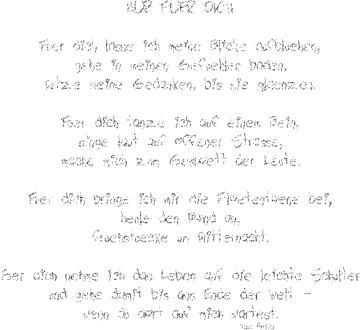 NUR FUER DICH
Fuer dich, lasse ich meine Blicke aufbluehen,
gehe in meinen Gefuehlen baden,
putze meine Gedanken, bis sie glaenzen.
Fuer dich tanze ich auf einem Bein,
singe laut auf offener Strasse,
mache mich zum Gespoett der Leute.
Fuer dich bringe ich mir die Floetentoene bei,
heule den Mond an,
fruehstuecke um Mitternacht.
Fuer dich nehme ich das Leben auf die leichte Schulter
und gehe damit bis ans Ende der Welt -
wenn du dort auf mich wartest.